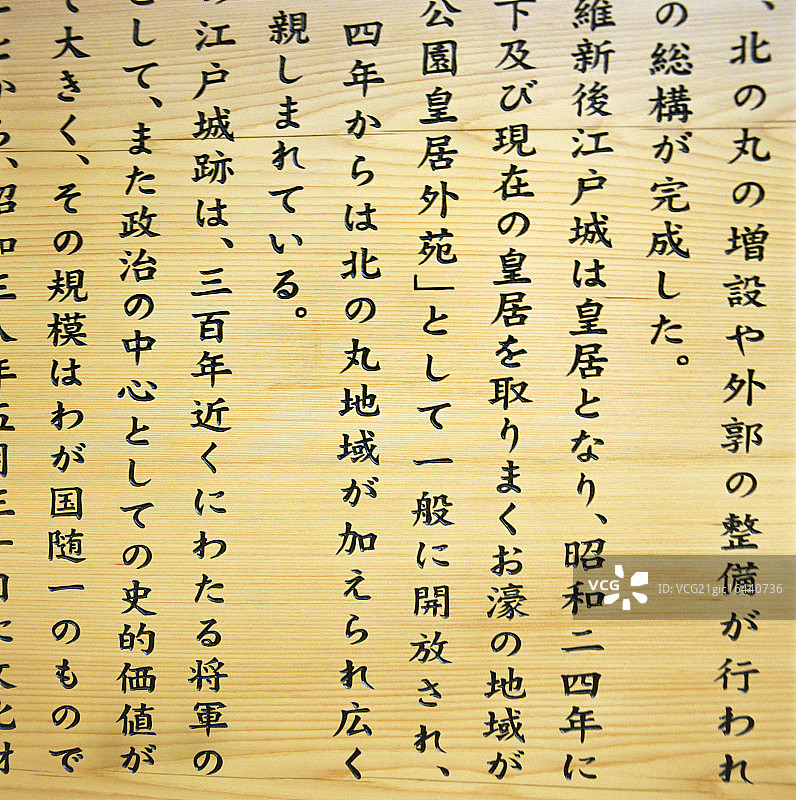 、北の丸の増設や外郭の整備が行われ
の総構が完成した。
維新後江戸城は皇居となり、昭和二四年に
下及び現在の皇居を取りまくお濠の地域が
公園皇居外苑」として一般に開放され、
四年からは北の丸地域が加えられ広く
親しまれている。
江戸城跡は、三百年近くにわたる将軍の
として、また政治の中心としての史的価値が
て大きく、その規模はわが国随一のもので
とから、昭和三八年五月三十日に文化財
VCG
ID: VCG21gic
6440736